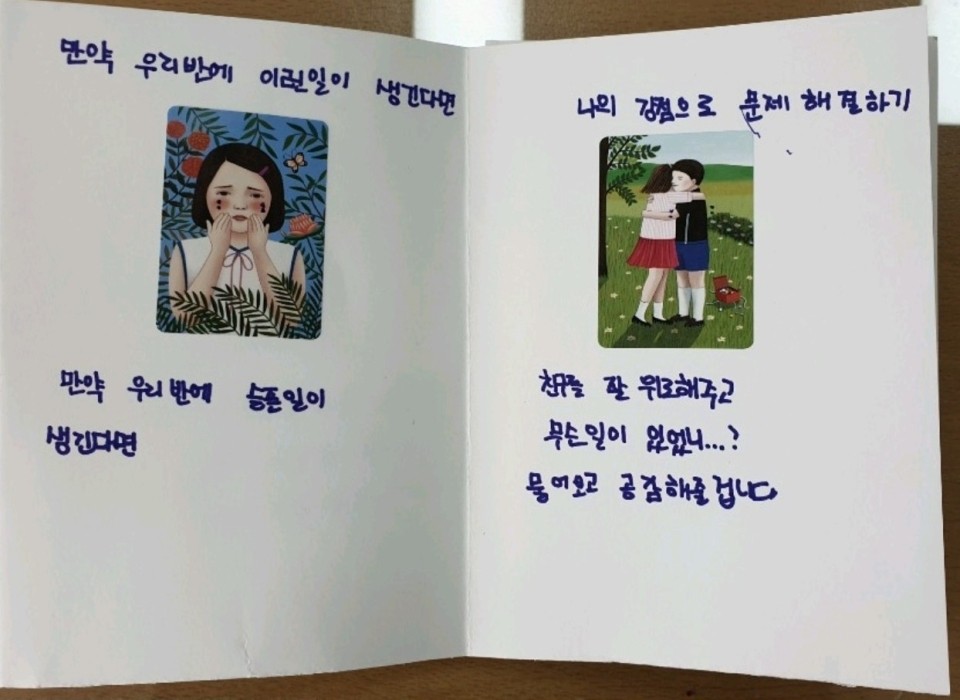 만약 우리반에 이런일이 생긴다면
만약 우리반에 슬픈일이
생긴다면
나의 강점으로 문제 해결하기
친구를 잘 위로해주고
무슨일이 있었니...?
물어보고 공감해줄겁니다